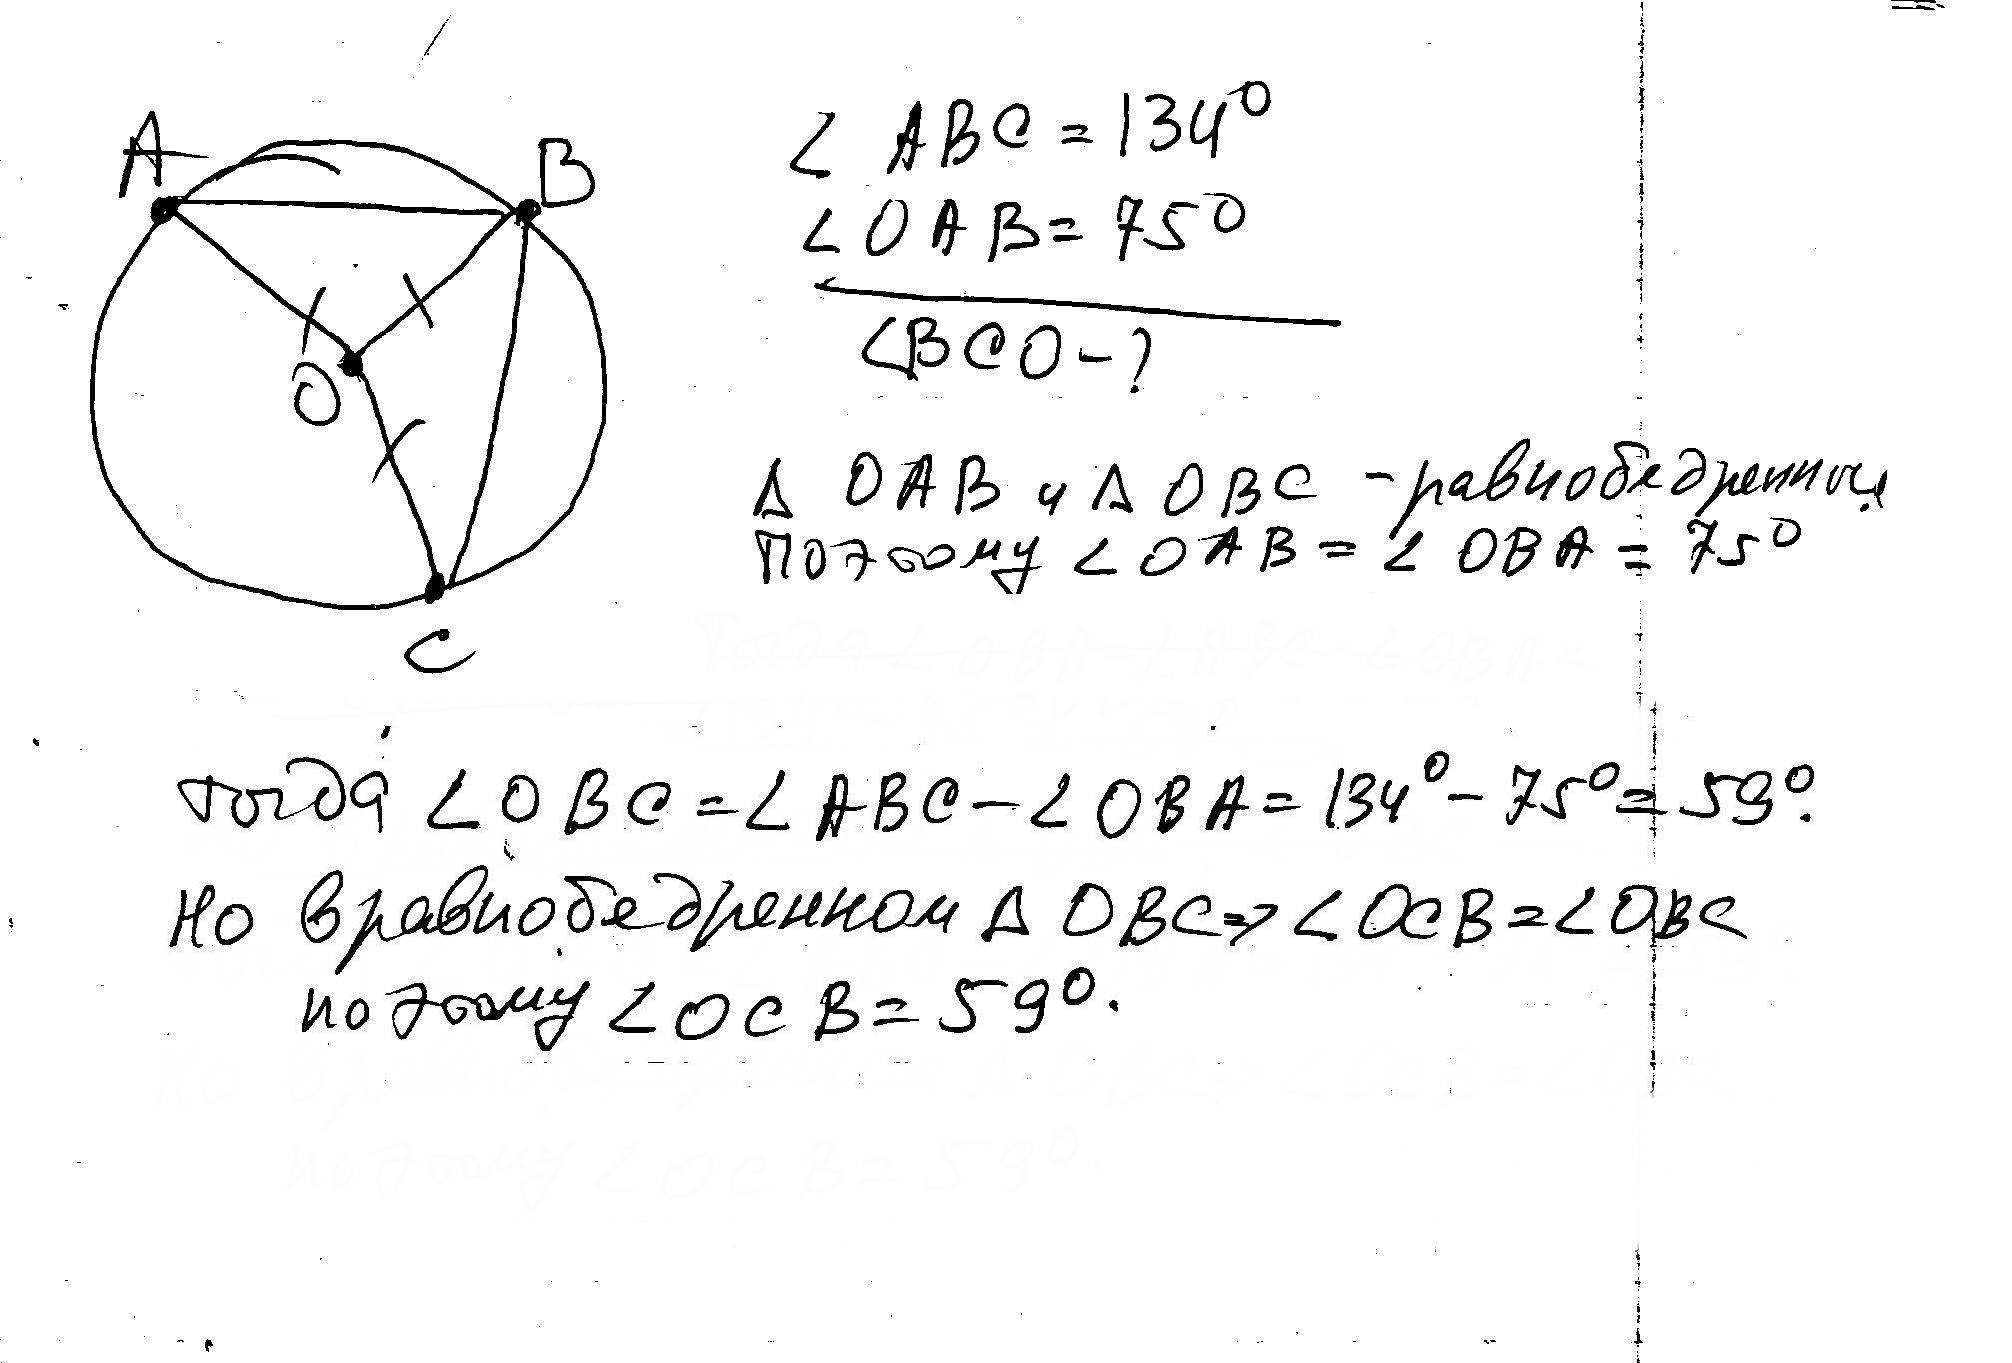 A
B
O
C
∠ ABC = 134°
∠ OAB = 75°
∠BCO - ?
Δ OAB и Δ OBC - равнобедренные
Поэтому ∠ OAB = ∠ OBA = 75°
тогда ∠ OBC = ∠ ABC - ∠ OBA = 134° - 75° = 59°.
Но в равнобедренном Δ OBC => ∠ OCB = ∠ OBC
поэтому ∠ OCB = 59°.